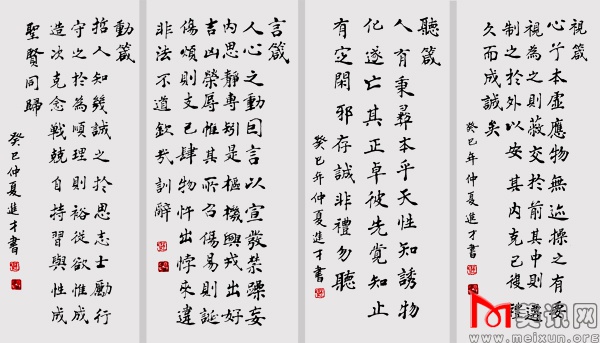 視箴
心兮本虛應物無迹操之有要
視為之則蔽交於前其中則遷
制之於外以安其內克己復禮
久而成誠矣
癸巳年仲夏進才書
聽箴
人有秉彝本乎天性知誘物
化遂亡其正卓彼先覺知止
有定閑邪存誠非禮勿聽
癸巳年仲夏進才書
言箴
人心之動因言以宣發禁躁妄
內思靜專矧是樞機興戎出好
吉凶榮辱惟其所召傷易則誕
傷煩則支己肆物忤出悖來違
非法不道欽哉訓辭
動箴
哲人知幾誠之於思志士勵行
守之於為順理則裕從欲惟
造次克念戰兢自持習與性成
聖賢同歸
癸巳仲夏進才書
美讯网
www.meixun.org